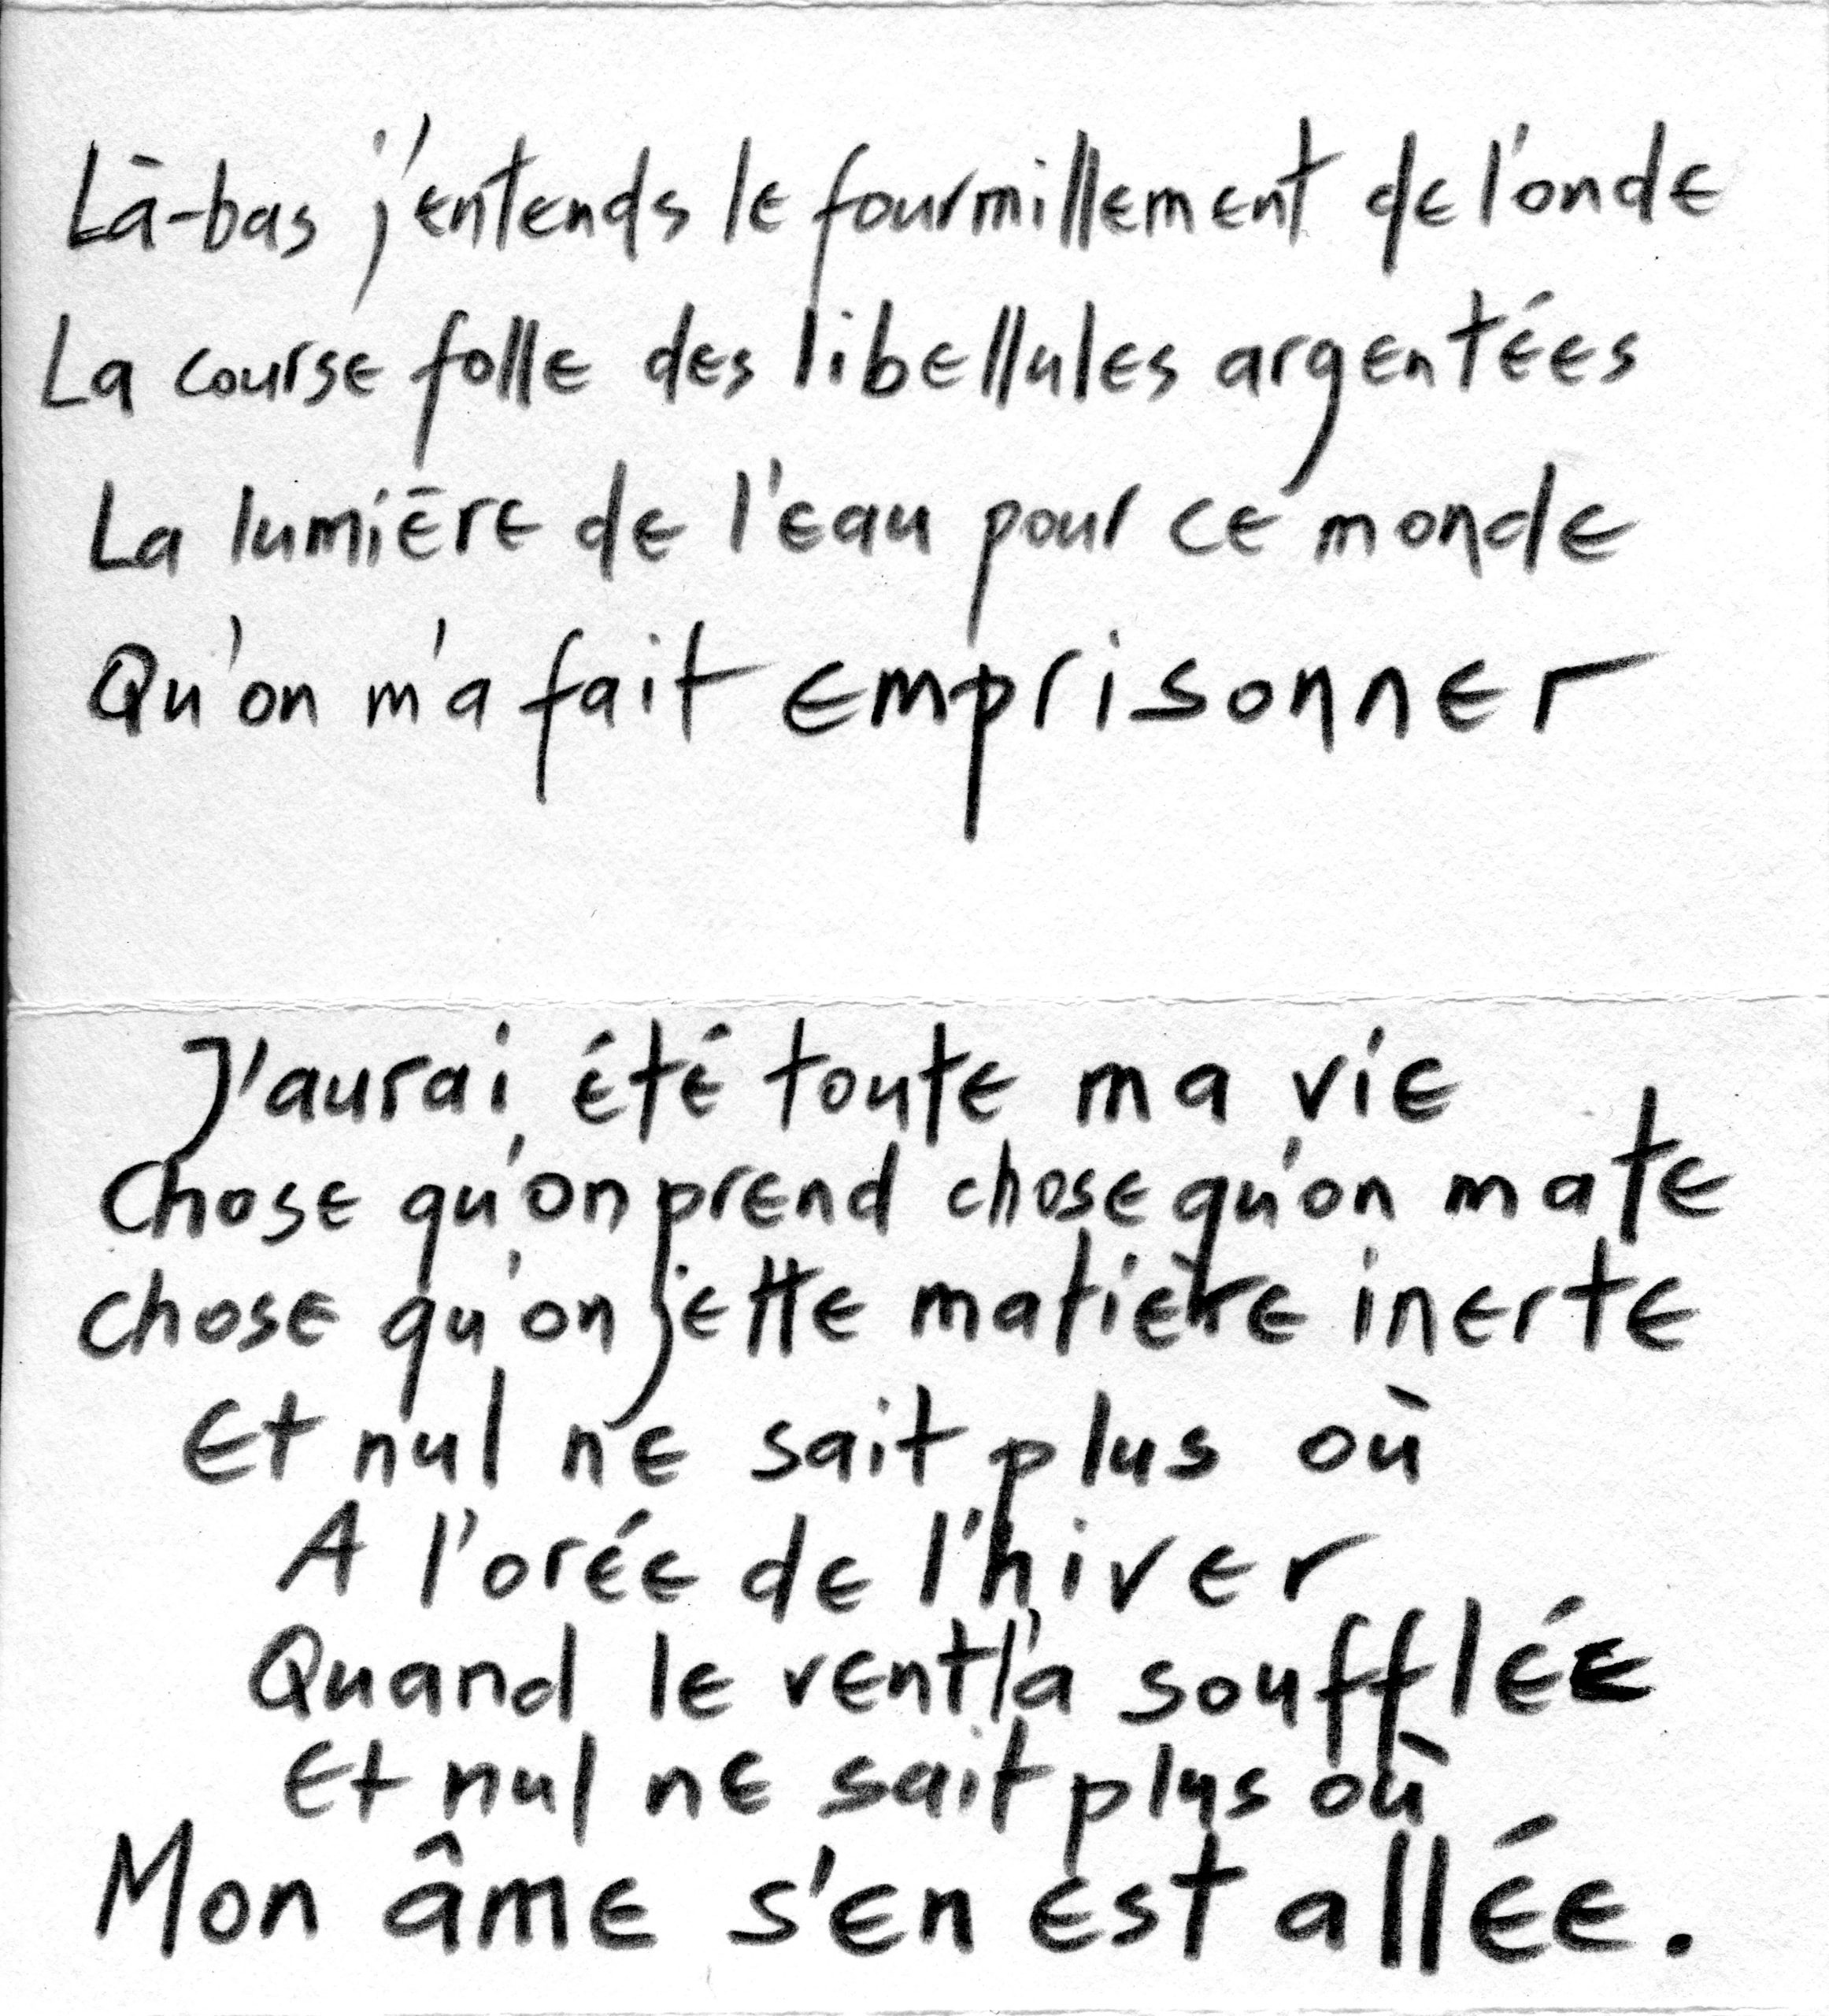 Là-bas j'entends le fourmillement de l'onde
La course folle des libellules argentées
La lumière de l'eau pour ce monde
Qu'on m'a fait emprisonner
J'aurai été toute ma vie
Chose qu'on prend chose qu'on mate
chose qu'on jette matière inerte
Et nul ne sait plus où
A l'orée de l'hiver
Quand le vent l'a soufflée
Et nul ne sait plus où
Mon âme s'en est allée.